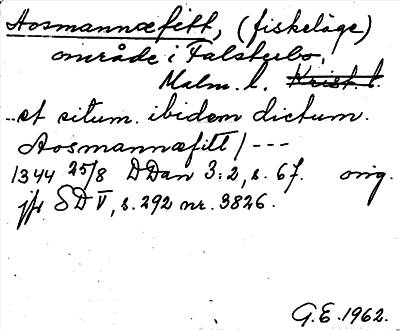 Aosmannæfitt, (fiskeläge)
område i Falsterbo,
Malm. l. Krist. l.
..et situm. ibidem dictum.
Aosmannæfitt/---
1344 25/8 DDan 3:2, s. 67. orig.
jfr SD V, s. 292 nr. 3826.
G.E. 1962.